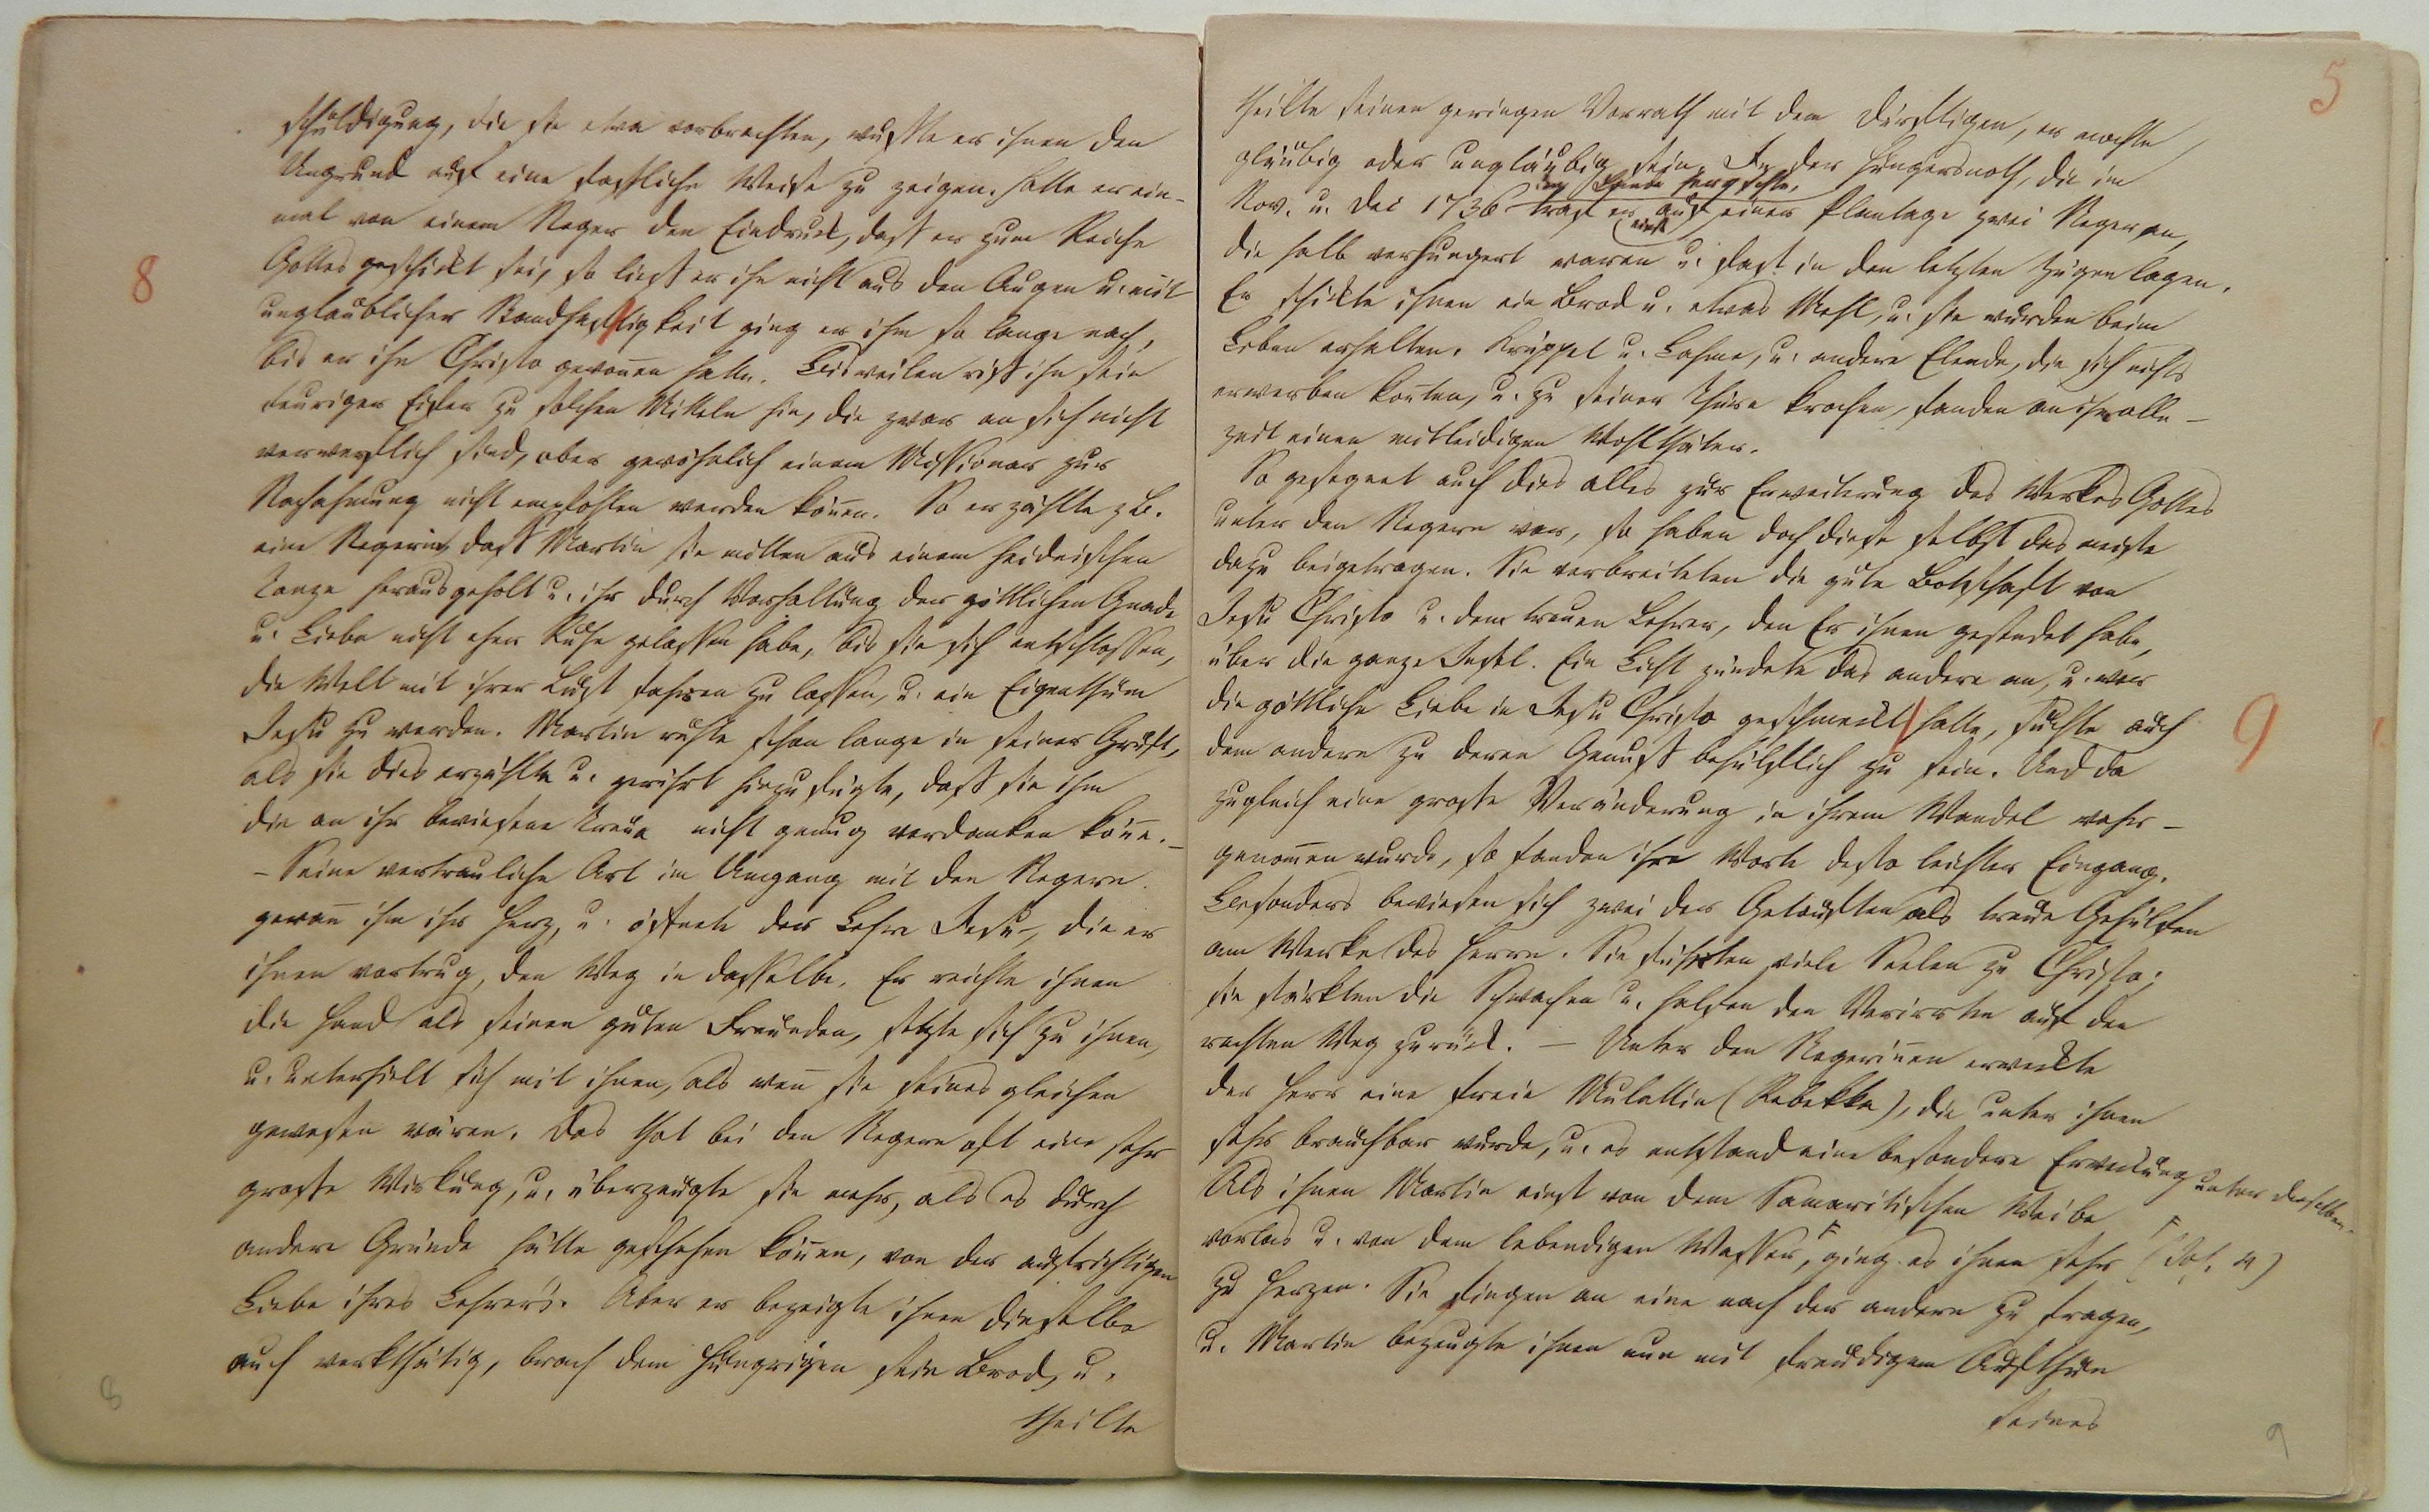 schuldigung, die sie etwa vorbrachten, wußte er ihnen den
Ungrund auf eine faßliche Weise zu zeigen. Hatte er ein-
mal von einem Neger den Eindruck, daß er zum Reiche
Gottes geschickt sei, so ließ er ihn nicht aus den Augen u. mit
8
unglaublicher Standhaftigkeit ging er ihm so lange nach,
bis er ihn Christo gewonnen hatte. Bisweilen riß ihn sein
feuriger Eifer zu solchen Mitteln hin, die zwar an sich nicht
verwerflich sind, aber gewöhnlich einem Missionar zur
Nachahmung nicht empfohlen werden können. So erzählte z.B.
eine Negerin, daß Martin sie mitten aus einem heidnischen
Tanze herausgeholt u. ihr durch Vorhaltung der göttlichen Gnade
u. Liebe nicht eher Ruhe gelassen habe, bis sie sich entschlossen,
die Welt mit ihrer Lust fahren zu lassen, u. ein Eigenthum
Jesu zu werden. Martin ruhte schon lange in seiner Gruft,
als sie dies erzählte u. gerührt hinzufügte, daß sie ihm
die an ihr bewiesene Treue nicht genug verdanken könne. –
– Seine vertrauliche Art im Umgang mit den Negern
gewann ihm ihr Herz, u. öffnete der Lehre Jesu, die er
ihnen vortrug, den Weg in dasselbe. Er reichte ihnen
die Hand als seinen guten Freunden, setzte sich zu ihnen,
u. unterhielt sich mit ihnen, als wenn sie seines gleichen
gewesen wären. Das that bei den Negern oft eine sehr
große Wirkung, u. überzeugte sie mehr, als es durch
andere Gründe hätte geschehen können, von der aufrichtigen
Liebe ihres Lehrers. Aber er bezeigte ihnen dieselbe
auch werkthätig, brach dem Hungrigen sein Brod, u.
theilte
8
5
theilte seinen geringen Vorrath mit dem Dürftigen, er mochte
gläubig oder ungläubig sein. In der Hungersnoth, die im
Nov. u. Dec 1736 traf er auf einer Plantage zwei Neger an,
einst
die halb verhungert waren u. fast in den letzten Zügen lagen.
Er schickte ihnen ein Brod u. etwas Mehl, u. sie wurden beim
Leben erhalten. Krüppel u. Lahme, u. andere Elende, die sich nichts
erwerben konten, u. zu seiner Thüre krochen, fanden an ihm alle-
zeit einen mitleidigen Wohlthäter.
So gesegnet auch dies alles zur Erweiterung des Werkes Gottes
unter den Negern war, so haben doch diese selbst das meiste
dazu beigetragen. Sie verbreiteten die gute Botschaft von
Jesu Christo u. dem treuen Lehrer, den Er ihnen gesendet habe,
über die ganze Insel. Ein Licht zündete das andere an, u. wer
die göttliche Liebe in Jesu Christo geschmeckt hatte, suchte auch
9
dem andern zu deren Genuß behülflich zu sein. Und da
zugleich eine große Veränderung in ihrem Wandel wahr-
genommen wurde, so fanden ihre Worte desto leichter Eingang.
Besonders bewiesen sich zwei der Getauften als treue Gehülfen
am Werke des Herrn. Sie führten viele Seelen zu Christo;
sie stärkten die Schwachen u. halfen den Verirrten auf den
rechten Weg zurück. – Unter den Negerinnen erweckte
der Herr eine freie Mulattin (Rebekka), die unter ihnen
sehr brauchbar wurde, u. es entstand eine besondere Erweckung unter denselben.
Als ihnen Martin einst von dem Samaritischen Weibe
vorlas u. von dem lebendigen Wasser, ging es ihnen sehr (Joh. 4)
zu Herzen. Sie fingen an eine nach der andern zu fragen,
u. Martin bezeugte ihnen nun mit freudigem Aufthun
seines
9